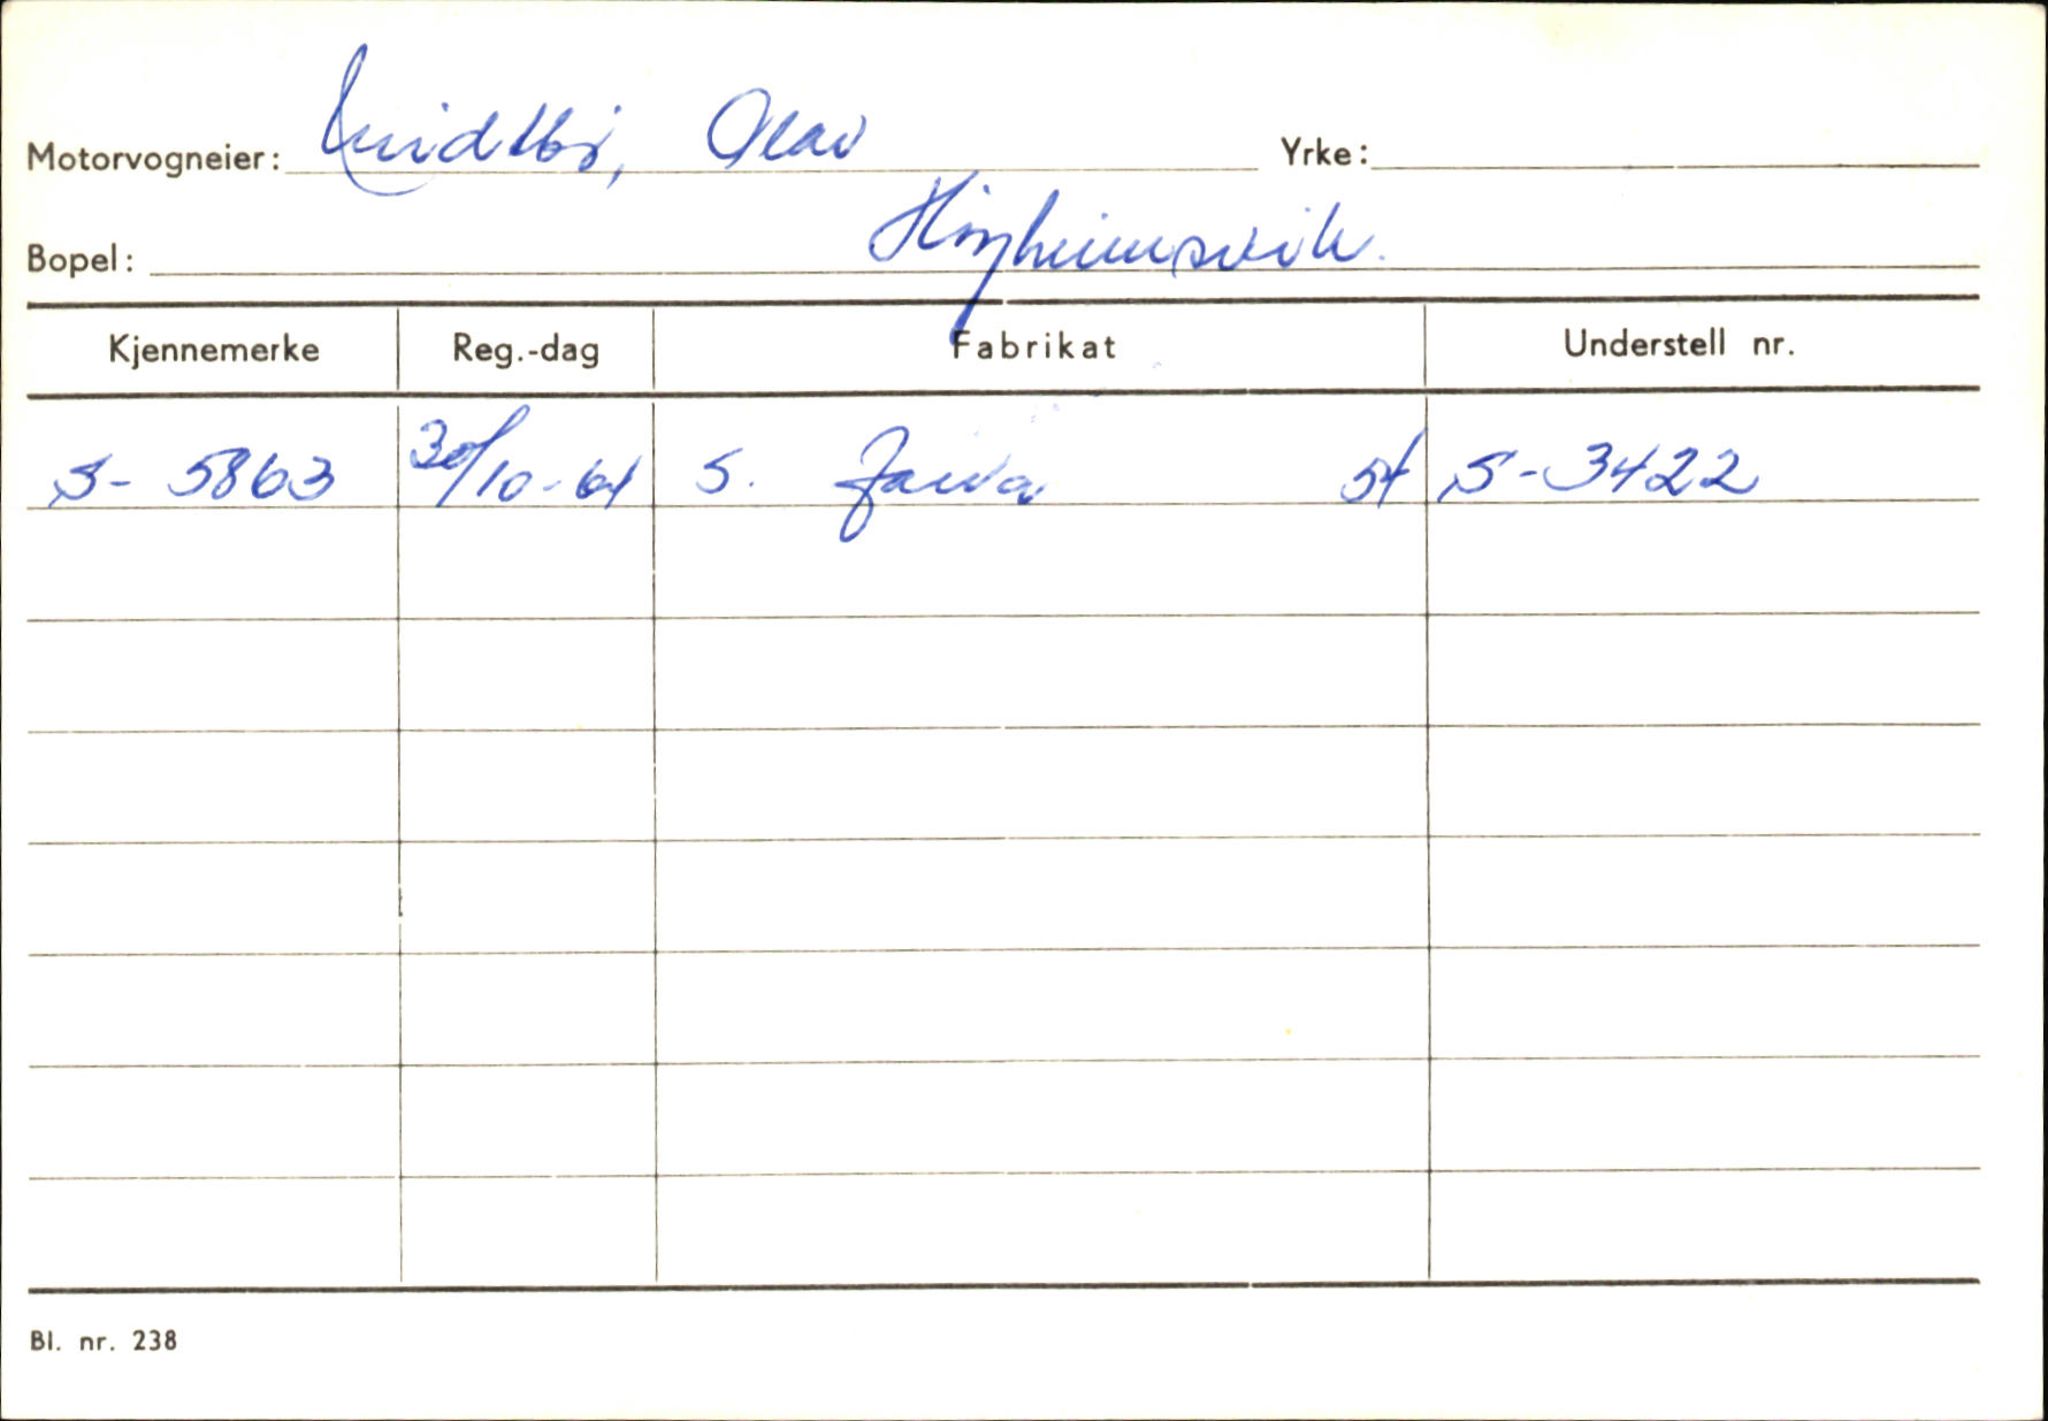 Motorvogneier: Midtbö, Olav Yrke:
Bopel: Höyheimsvik.
Kjennemerke Reg.-dag Fabrikat Understell nr.
S- 5863 30/10-61 S. Jawa 54 S-3422
Bl. nr. 238